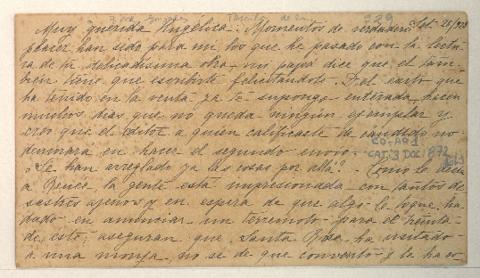 Muy querida Angélica: Momentos de verdadero Set 25/928
placer han sido para mi los que he pasado con la lectu-
ra de tu delicadísima obra, mi papá dice que el tam-
bién tiene que escribirte felicitándote. Del exito que
ha tenido en la venta ya te supongo enterada, hacen
muchos dias que no queda ningún ejemplar y
creo que el editor a quien calificaste de candido no
demorará en hacer el segundo envio.
¿Se han arreglado ya las cosas por allá? - Como le decía
a Reuca la gente está impresionada con tantos de-
sastres ajenos y en espera de que algo le toque, ha
dado en anunciar un terremoto - para el héuta-
de esto, aseguran que Santa Rosa ha visitado
a una monja, no se de que convento y la ha co
229
CO-AA1
CAT.3 DOC 872